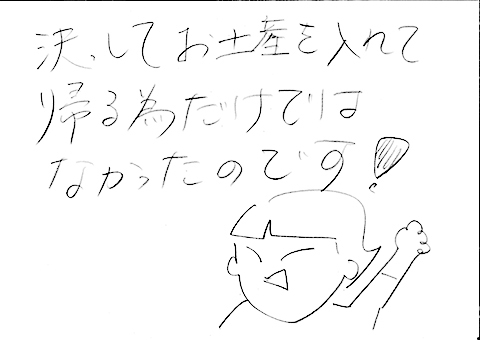 決してお土産を入れて
帰る為だけでは
なかったのです!